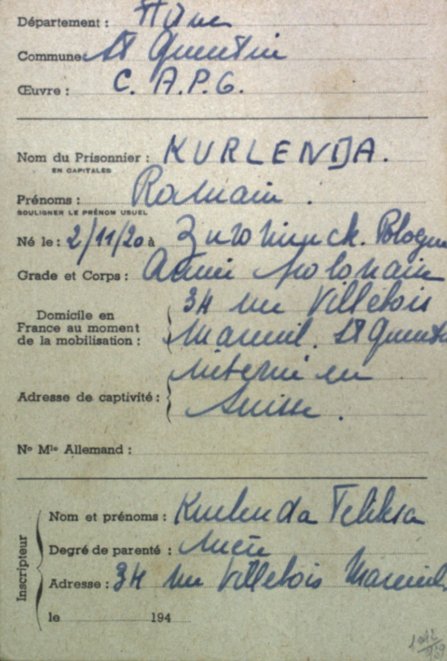 Département : Aisne
Commune St Quentin
Œuvre : C. A. P. G.
Nom du Prisonnier : KURLENDA.
EN CAPITALES
Prénoms : Romain.
SOULIGNER LE PRÉNOM USUEL
Né le : 2/11/20 à Pologne
Grade et Corps : Armée Polonaise
34 rue Villebois
Domicile en
France au moment
de la mobilisation :
Mareuil. St Quentin
Interné en
Adresse de captivité :
Suisse.
No Mle Allemand :
Nom et prénoms : Kurlenda Feliksa
Degré de parenté : mère
Inscripteur
Adresse : 34 rue Villebois Mareuil.
le 194